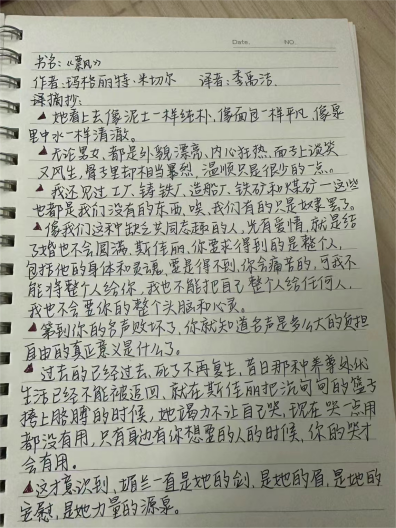 Date. NO.
书名:《飘》
作者:玛格丽特·米切尔 译者:李禹洁
课摘抄:
▲她看上去像泥土一样纯朴,像面包一样平凡,像泉
里中水一样清澈。
▲无论男女,都是外貌漂亮、内心狂热,而于上谈笑
又风生,骨子里却相当暴烈,温顺只是很少的一点。
▲我还见过工厂、铸铁厂、造船厂、铁矿和煤矿一这些
也都是我们没有的东西,唉,我们有的只是奴隶罢了。
▲像我们这种缺乏共同志趣的人,光有爱情,就是结
了婚也不会圆满,斯佳丽,你要求得到的是整个人,
包括他的身体和灵魂,要是得不到,你会痛苦的,可我不
能将整个人给你,我也不能把自己整个人给任何人,
我也不会要你的整个头脑和心灵。
▲等到你的名声败坏了,你就知道名声是多么大的负担
自由的真正意义是什么了。
▲过去的已经过去,死了不再复生,昔日那种养尊处优
生活已经不能被追回,就在斯佳丽把沉甸甸的篮子
挎上胳膊的时候,她竭力不让自己哭,现在哭一点用
都没有用,只有身边有你想要的人的时候,你的哭才
会有用。
▲这才意识到,媚兰一直是她的剑,是她的盾,是她的
安慰,是她力量的源泉。